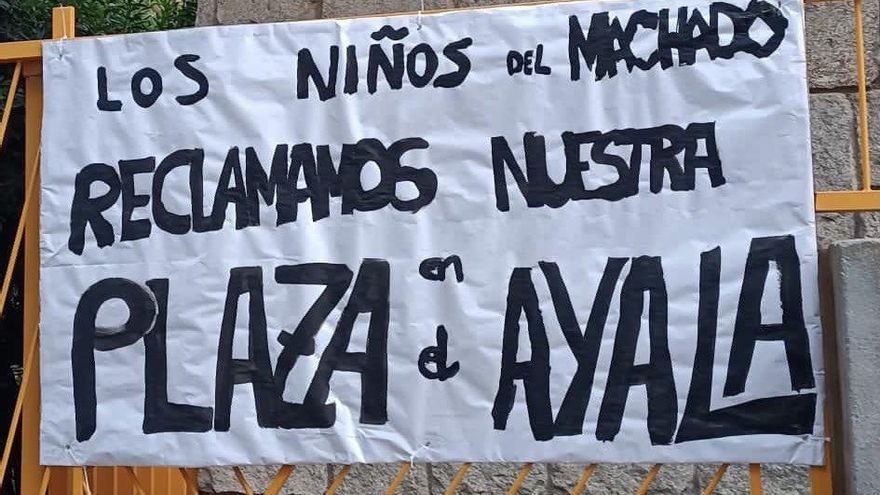 LOS NIÑOS DEL MACHADO
RECLAMAMOS NUESTRA
PLAZA en el AYALA